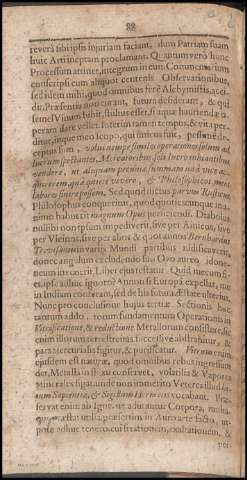 88
reverâ sibi ipsis injuriam faciant, dum Patriam suam
huic Arti ineptam proclamant. Quantum verò hunc
Processum attinet, integrum in eum Commentarium
conscripsi cum aliquot centenis Observationibus,
sed idem mihi, quod omnibus ferè Alchymistis, acci-
dit. Præsentis non curant, futura desiderant, & qui
semel Vinum bibit, stultus esset, si aquæ hauriendæ o-
peram dare vellet. Interim tamen tempus, & vita peri-
titur, inque meo scopo, qui unicus fuit, pessimè de-
ceptus sum, volui nempe simili operatione solùm ad
lucrum spectantes, Mercatoribus solis lucro inhiantibus
vendere, ut aliquam pecuniæ summam mihi vel ac-
quirerem quâ quiete vivere, & Philosophicos meos
labores interpossem. Sed quid iterum
Philosophus conqueritur, quod quotiescunque in a-
nimo habuerit magnum Opus perficiendi, Diabolus
nullibi non ipsum impediverit, sive per Amicos, sive
per Vicinos, sive per alios & quot annos Bernhardus
Trevisanus in variis Mundi partibus ædificaverit,
donec angulum excludendo suo Ovo aureo idone-
um invenerit. Liber ejus testatur. Quid mecum fi-
et, ipse adhuc ignoro? Annon si Europâ expellar, me
in Indiam conferam, sed de his futura ætas tolerius.
Nunc pro conclusione hujus tertiæ Sectionis hoc
tantùm addo, totum fundamentum Operationis in
Vitrificatione, & reductione Metallorum consistere, sic
enim illorum terrestreitas successivè abstrahitur, &
pars mercurialis figitur, & purificatur. Vitrum enim
ejusdem est naturæ, quod omnibus rebus ingressum
det, Metalla in fluxu conservet, volatilia & Vapores
minerales figat unde non immeritò Veteres illud salem
Sapientiæ, & Sigillum Hermetis vocabant. Præ-
servat enim ab Igne, ne adurantur Corpora, multa
quæ extat utilia præsertim in Auro arte facto, im-
pose adhuc tenero, cui fixationem, exaltationem, &
per-